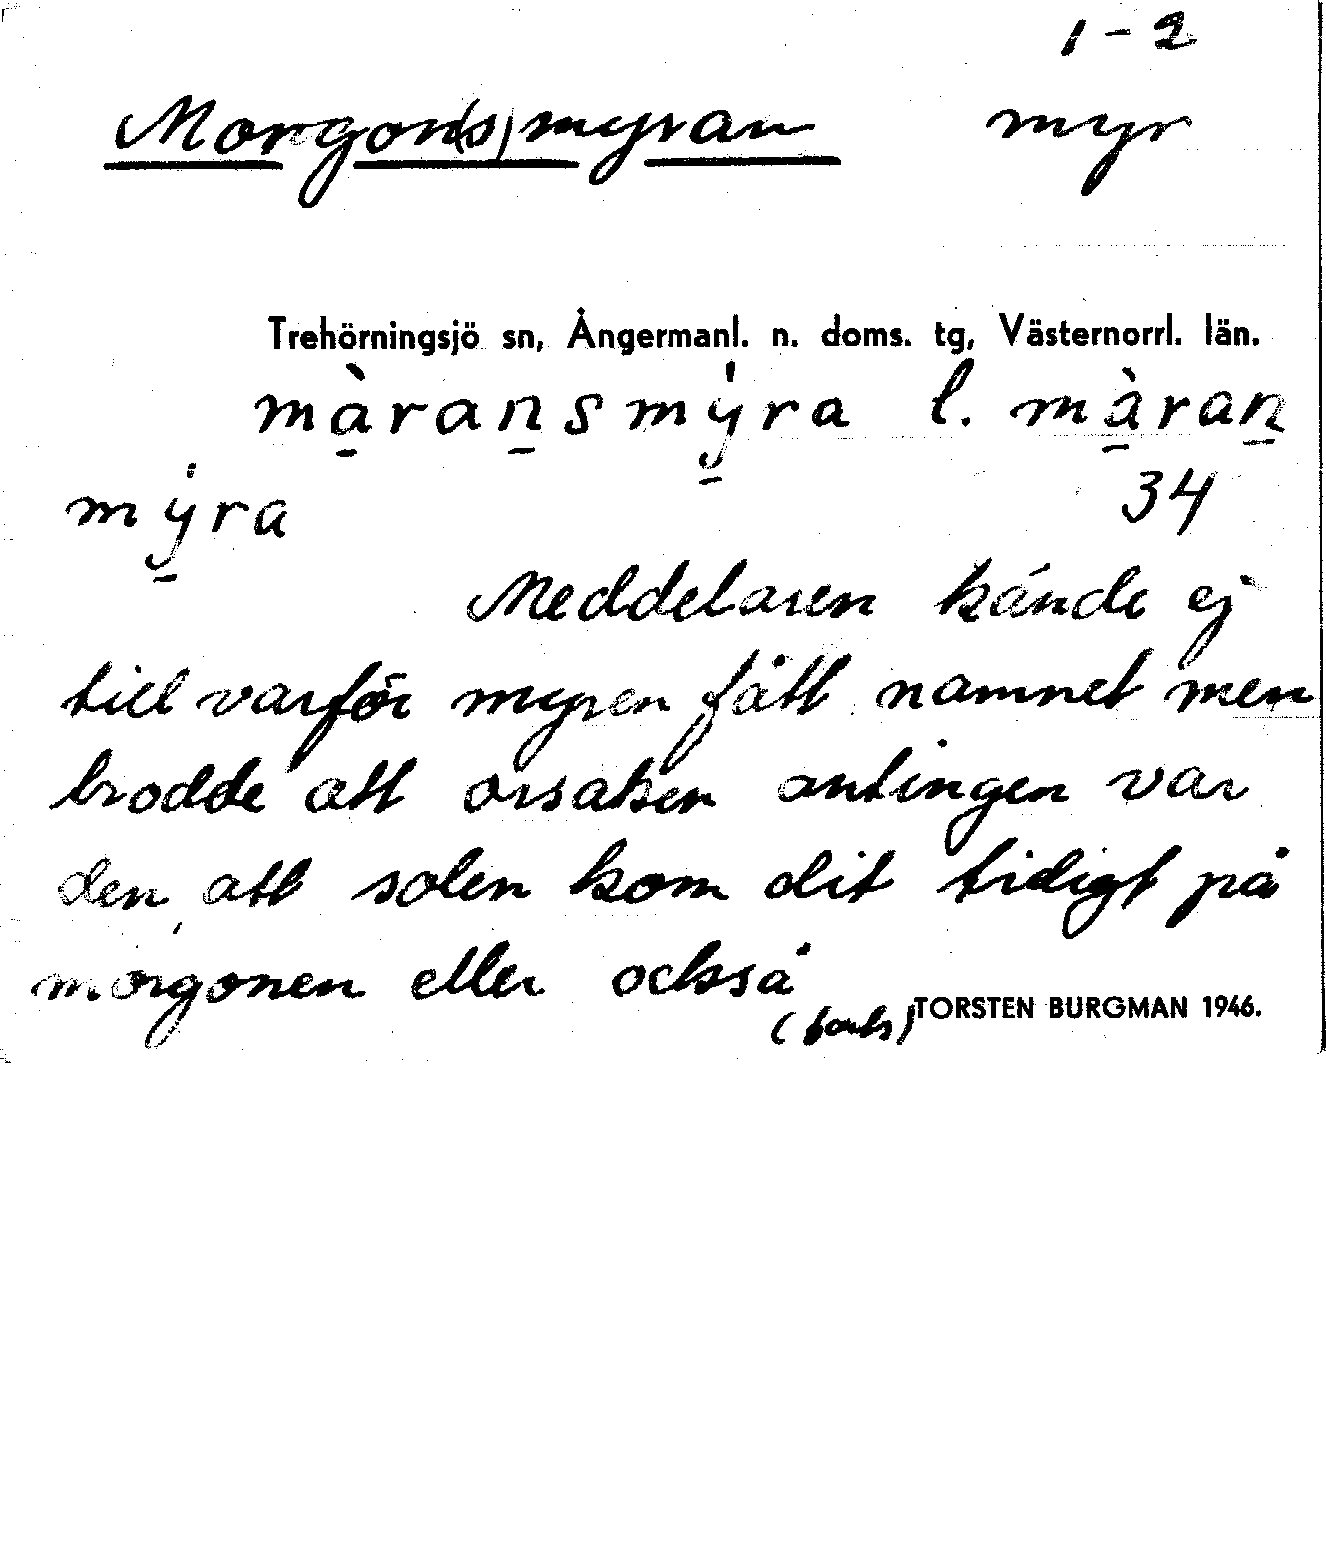 1-2
Morgon(s)myran myr
Trehörningsjö sn, Ångermanl. n. doms. tg, Västernorrl. län.
mà̱raṉsmẏ̱ra l. mà̱raṉ
mẏ̱ra 34
Meddelaren kände ej
till varför myren fått namnet men
trodde att orsaken antingen var
den, att solen kom dit tidigt på
morgonen eller också
(forts) TORSTEN BURGMAN 1946.